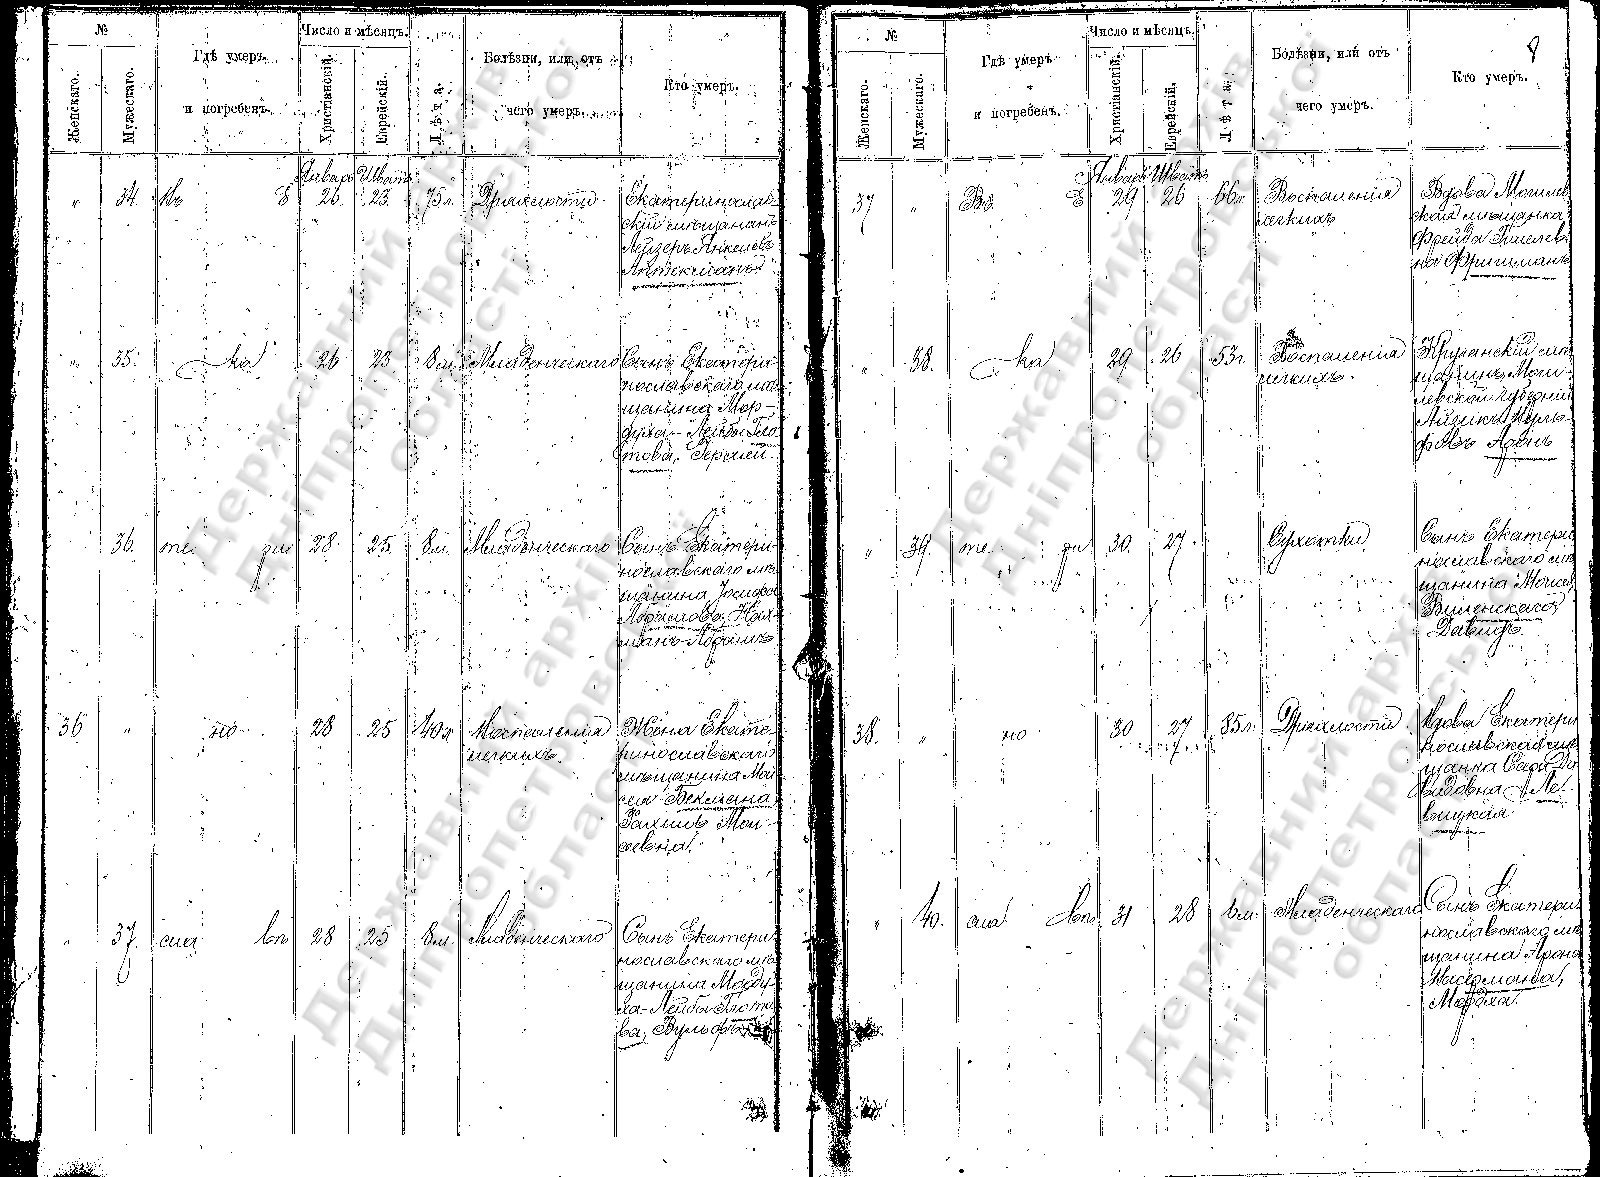 №
Женскаго.
Мужескаго.
Гдѣ умеръ
и погребенъ.
Число и мѣсяцъ.
Христіанскій.
Еврейскій.
Лѣта.
Болѣзни, или отъ
чего умеръ.
Кто умеръ.
Январь Шватъ
„ 34. Въ Е 26 23 75 л. Дряхлости
Екатеринослав-
скій мѣщанинъ
Лейзеръ Янкелевъ
Аптекманъ
„ 35. ка 26 23 8 м. Младенческаго
Сынъ Екатери-
нославскаго мѣ-
щанина Мор-
духа-Лейбы Гло-
това,
36. те ри 28 25 8 м. Младенческаго
Сынъ Екатери-
нославскаго мѣ-
щанина Іосифа
36 „ но 28 25 40 л. Воспаленія
легкихъ.
Жена Екате-
ринославскаго
мѣщанина Мои-
сея Бекмана,
Рахиль Мои-
сеевна
„ 37. сла вѣ 28 25 8 м. Младенческаго
Сынъ Екатери-
нославскаго мѣ-
щанина Морду-
ха-Лейбы Глото-
ва, Вульфъ
8
№
Женскаго.
Мужескаго.
Гдѣ умеръ
и погребенъ.
Число и мѣсяцъ.
Христіанскій.
Еврейскій.
Лѣта.
Болѣзни, или отъ
чего умеръ.
Кто умеръ.
Январь Шватъ
37 „ Въ Е 29 26 66 л. Воспаленія
легкихъ
Вдова Могилев-
ская мѣщанка
Фрейда
на Фришманъ
„ 38. ка 29 26 53 г. Воспаленія
легкихъ.
мѣ-
щанинъ, Моги-
левской губерніи
Айзикъ
„ 39. те ри 30. 27 Сухотки
Сынъ Екатери-
нославскаго мѣ-
щанина Моисея
Виленскаго,
Давидъ.
38. „ но 30 27 85 л. Дряхлости
Вдова Екатери-
нославская мѣ-
щанка Сара Да-
видовна Ле-
вицкая
„ 40. сла вѣ 31 28 6 м. Младенческаго
Сынъ Екатери-
нославскаго мѣ-
щанина Арона
Мордха.